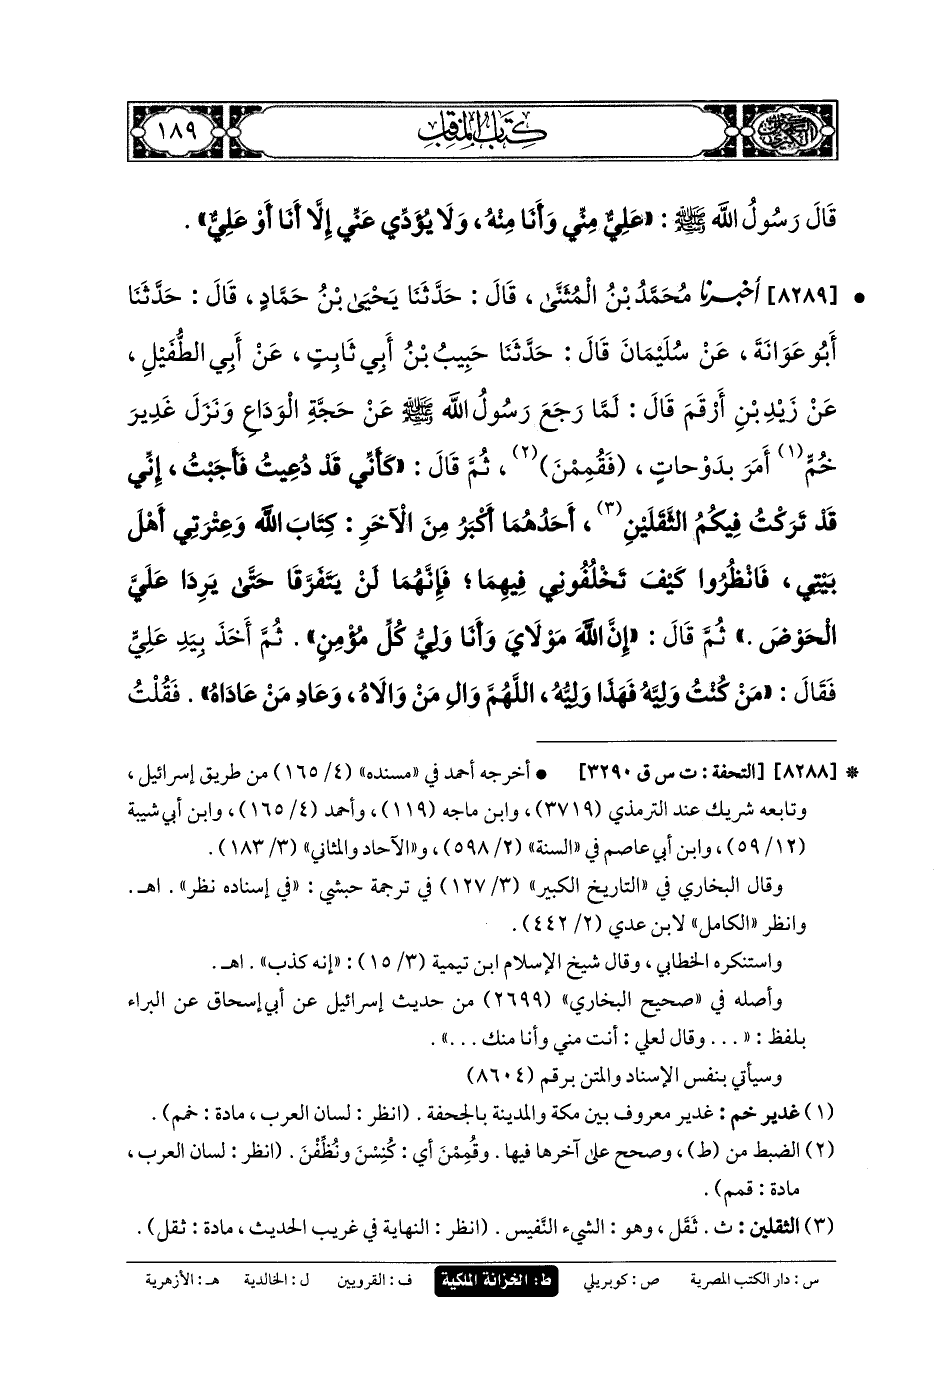 كتاب المناقب
١٨٩
قَالَ رَسُولُ اللَّه ﷺ : «عَلِيٌّ مِنِّي وَأَنَا مِنْهُ، وَلَا يُؤَدِّي عَنِّي إِلَّا أَنَا أَوْ عَلِيٌّ» .
• [٨٢٨٩] أَخْبَرَنَا مُحَمَّدُ بْنُ الْمُثَنَّى ، قَالَ : حَدَّثَنَا يَحْيَى بْنُ حَمَّادٍ ، قَالَ : حَدَّثَنَا
أَبُو عَوَانَةَ ، عَنْ سُلَيْمَانَ قَالَ : حَدَّثَنَا حَبِيبُ بْنُ أَبِي ثَابِتٍ ، عَنْ أَبِي الطُّفَيْلِ ،
عَنْ زَيْدِ بْنِ أَرْقَمَ قَالَ : لَمَّا رَجَعَ رَسُولُ اللَّه ﷺ عَنْ حَجَّةِ الْوَدَاعِ وَنَزَلَ غَدِيرَ
خُمٍّ(١) أَمَرَ بِدَوْحَاتٍ ، (فَقُمِمْنَ)(٢) ، ثُمَّ قَالَ : «كَأَنِّي قَدْ دُعِيتُ فَأَجَبْتُ ، إِنِّي
قَدْ تَرَكْتُ فِيكُمُ الثَّقَلَيْنِ(٣) ، أَحَدُهُمَا أَكْبَرُ مِنَ الْآخَرِ : كِتَابَ اللَّه وَعِتْرَتِي أَهْلَ
بَيْتِي ، فَانْظُرُوا كَيْفَ تَخْلُفُونِي فِيهِمَا؛ فَإِنَّهُمَا لَنْ يَتَفَرَّقَا حَتَّى يَرِدَا عَلَيَّ
الْحَوْضَ .» ثُمَّ قَالَ : «إِنَّ اللَّهَ مَوْلَايَ وَأَنَا وَلِيُّ كُلِّ مُؤْمِنٍ» . ثُمَّ أَخَذَ بِيَدِ عَلِيٍّ
فَقَالَ : «مَنْ كُنْتُ وَلِيَّهُ فَهَذَا وَلِيُّهُ ، اللَّهُمَّ وَالِ مَنْ وَالَاهُ ، وَعَادِ مَنْ عَادَاهُ» . فَقُلْتُ
* [٨٢٨٨] [التحفة : ت س ق ٣٢٩٠] • أخرجه أحمد في «مسنده» (٤/ ١٦٥) من طريق إسرائيل ،
وتابعه شريك عند الترمذي (٣٧١٩)، وابن ماجه (١١٩)، وأحمد (٤/ ١٦٥)، وابن أبي شيبة
(١٢/ ٥٩)، وابن أبي عاصم في «السنة» (٢/ ٥٩٨)، و«الآحاد والمثاني» (٣/ ١٨٣).
وقال البخاري في «التاريخ الكبير» (٣/ ١٢٧) في ترجمة حبشي : «في إسناده نظر» . اهـ.
وانظر «الكامل» لابن عدي (٢/ ٤٤٢).
واستنكره الخطابي ، وقال شيخ الإسلام ابن تيمية (٣/ ١٥) : «إنه كذب» . اهـ.
وأصله في «صحيح البخاري» (٢٦٩٩) من حديث إسرائيل عن أبي إسحاق عن البراء
بلفظ : «... وقال لعلي : أنت مني وأنا منك ...» .
وسيأتي بنفس الإسناد والمتن برقم (٨٦٠٤)
(١) غدير خم : غدير معروف بين مكة والمدينة بالجحفة . (انظر : لسان العرب ، مادة : خمم) .
(٢) الضبط من (ط)، وصحح على آخرها فيها . وقُمِمْنَ أي : كُنِسْنَ ونُظِّفْنَ . (انظر : لسان العرب ،
مادة : قمم) .
(٣) الثقلين : ث . ثَقَل ، وهو : الشيء النَّفيس . (انظر : النهاية في غريب الحديث ، مادة : ثقل) .
س : دار الكتب المصرية ص : كوبريلي ط: الخزانة الملكية ف : القرويين ل : الخالدية هـ : الأزهرية